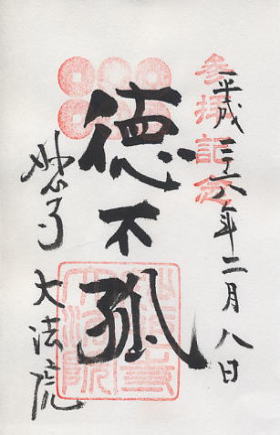 参拝記念
平成二十六年二月八日
徳不孤
妙心寺 大法院